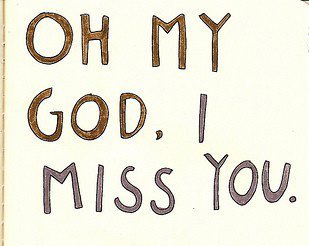 OH MY
GOD, I
MISS YOU.